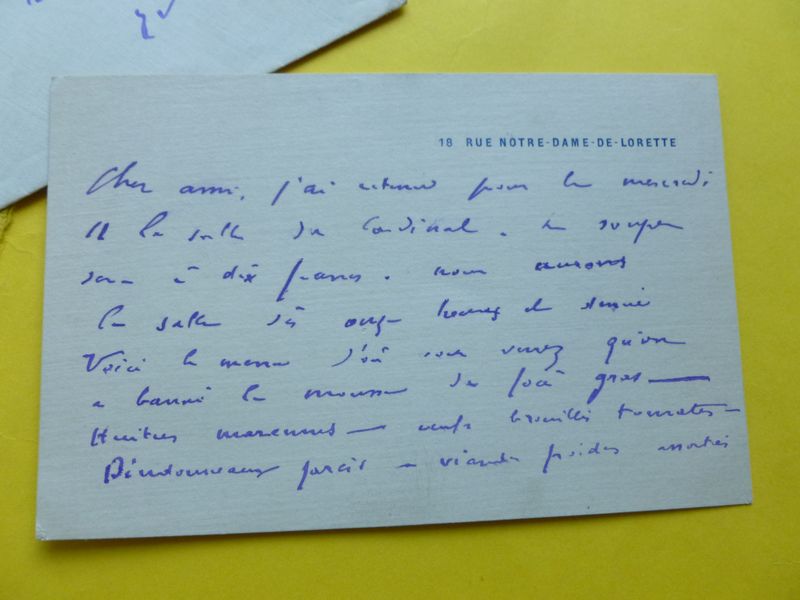 18 RUE NOTRE-DAME-DE-LORETTE
Cher ami, j'ai retenu pour le mercredi
11 la salle du Cardinal. Le souper
sera à dix francs. nous aurons
la salle dès onze heures et demie
Voici le menu d'où vous verrez qu'on
a banni la mousse de foie gras —
Huitres marennes — oeufs brouillés tomates —
Dindonneaux farcis — viandes froides assorties